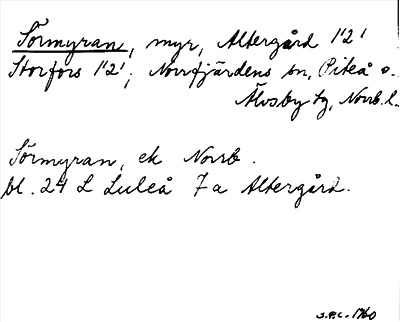 Sörmyran, myr, Altergård 1'2'
Storfors 1'2', Norrfjärdens sn, Piteå o.
Älvsby tg, Norrb. l.
Sörmyran, ek Norrb.
bl. 24 L Luleå 7a Altergård.
S.P.L. 1960